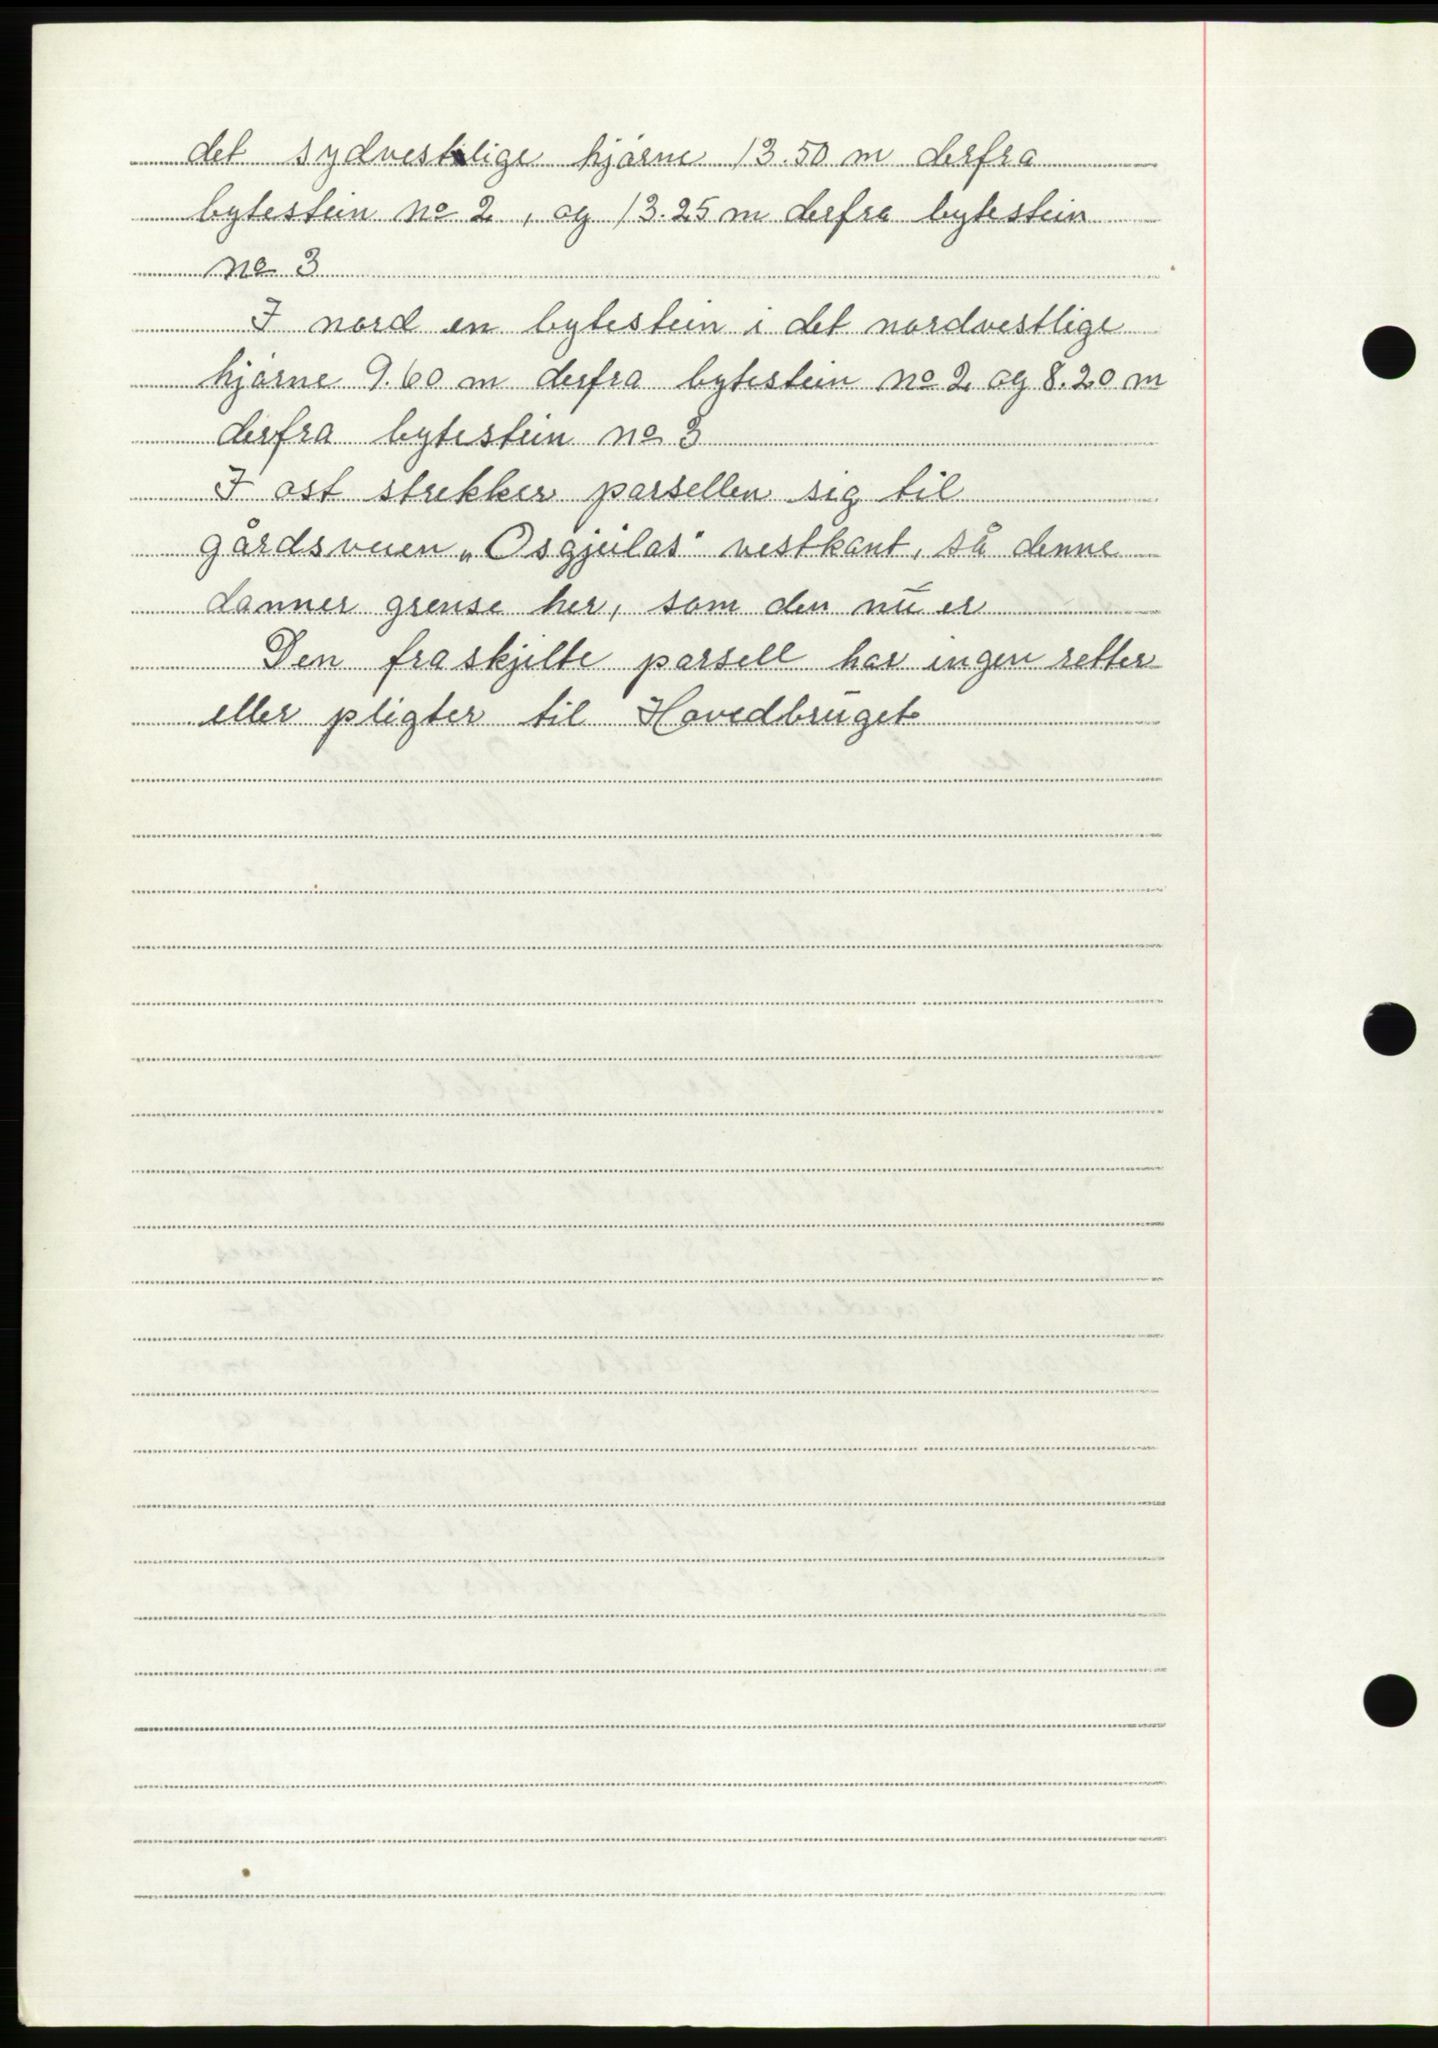 det sydvestlige hjørne 13.50 m derfra
bytestein no 2, og 13.25 m derfra bytestein
no 3
I nord en bytestein i det nordvestlige
hjørne 9.60 m derfra bytestein no 2 og 8.20 m
derfra bytestein no 3
I øst strekker parsellen sig til
gårdsveien „Osgjeilas" vestkant, så denne
danner grense her, som den nu er
Den fraskjelte parsell har ingen retter
eller pligter til Hovedbruget